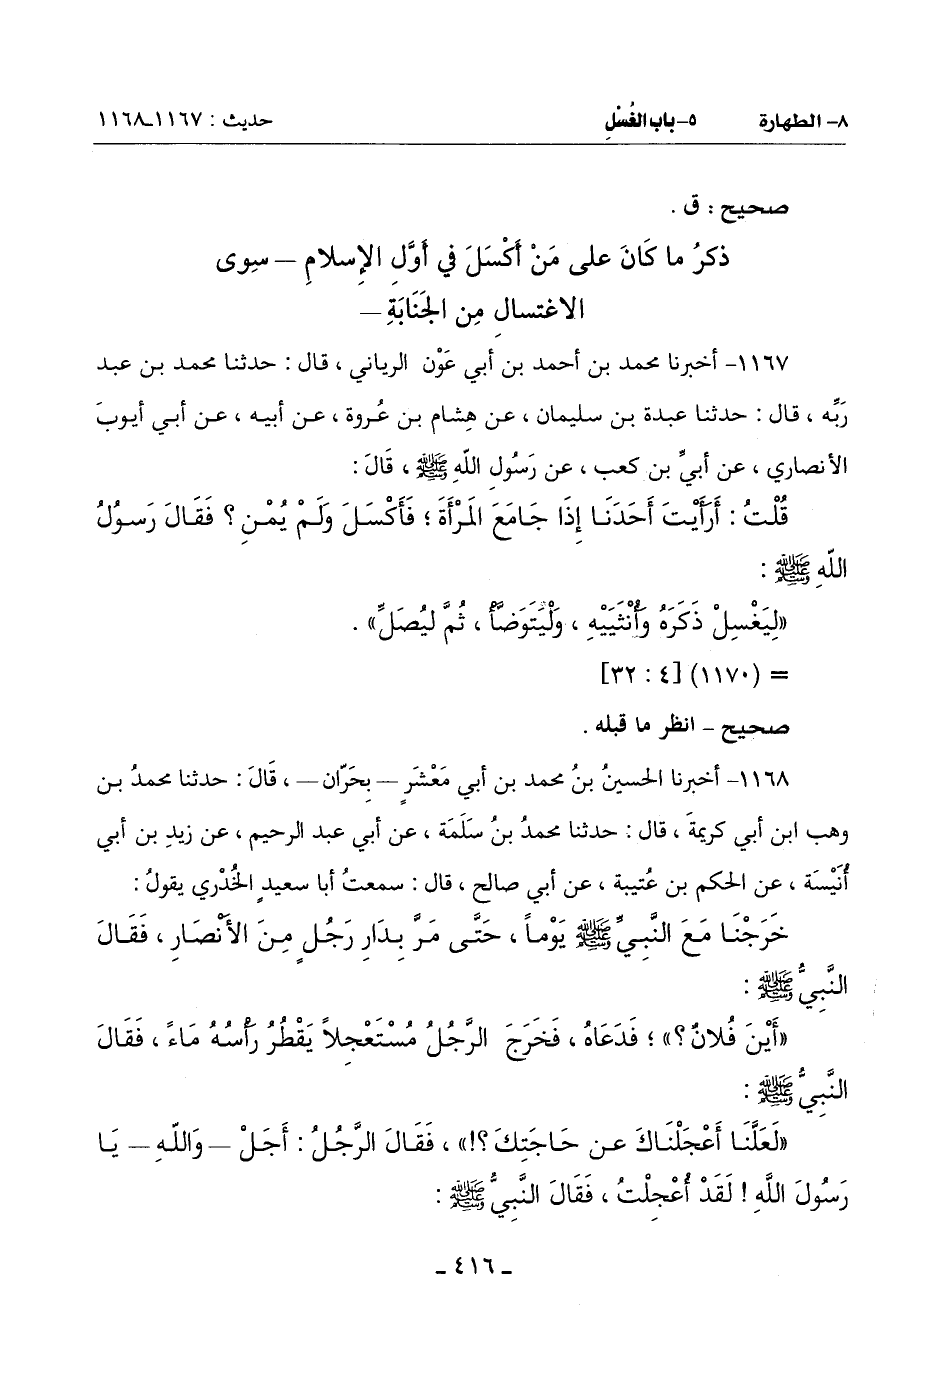 ٨- الطهارة ٥- باب الغُسْلِ حديث : ١١٦٧-١١٦٨
صحيح : ق .
ذكرُ ما كَانَ على مَنْ أَكْسَلَ في أَوَّلِ الإِسلامِ – سِوى
الاغتسالِ مِن الجَنَابَةِ –
١١٦٧- أخبرنا محمد بن أحمد بن أبي عَوْن الرياني ، قال : حدثنا محمد بن عبد
رَبِّه ، قال : حدثنا عبدة بن سليمان ، عن هِشام بن عُروة ، عن أبيه ، عن أبي أيوبَ
الأنصاري ، عن أبيِّ بن كعب ، عن رَسُولِ اللّهِ ﷺ ، قَالَ :
قُلْتُ : أَرَأَيْتَ أَحَدَنَا إِذَا جَامَعَ المَرْأَةَ ؛ فَأَكْسَلَ وَلَمْ يُمْنِ ؟ فَقَالَ رَسولُ
اللّهِ ﷺ :
«لِيَغْسِلْ ذَكَرَهُ وَأُنْثَيَيْهِ ، وَلْيَتَوَضَّأْ ، ثُمَّ لِيُصَلِّ» .
= (١١٧٠) [٤ : ٣٢]
صحيح – انظر ما قبله .
١١٦٨- أخبرنا الحسينُ بنُ محمد بن أبي مَعْشَرٍ – بحَرّان – ، قَالَ : حدثنا محمدُ بن
وهب ابن أبي كريمةَ ، قال : حدثنا محمدُ بنُ سَلَمَة ، عن أبي عبد الرحيم ، عن زيدِ بن أبي
أُنَيْسَة ، عن الحكم بن عُتيبة ، عن أبي صالح ، قال : سمعتُ أبا سعيدٍ الخُدْري يقولُ :
خَرَجْنَا مَعَ النَّبِيِّ ﷺ يَوْماً ، حَتَّى مَرَّ بِدَارِ رَجُلٍ مِنَ الأَنْصَارِ ، فَقَالَ
النَّبِيُّ ﷺ :
«أَيْنَ فُلانٌ ؟» ؛ فَدَعَاهُ ، فَخَرَجَ الرَّجُلُ مُسْتَعْجِلاً يَقْطُرُ رَأْسُهُ مَاءً ، فَقَالَ
النَّبِيُّ ﷺ :
«لَعَلَّنَا أَعْجَلْنَاكَ عن حَاجَتِكَ ؟!» ، فَقَالَ الرَّجُلُ : أَجَلْ – وَاللّهِ – يَا
رَسُولَ اللَّهِ ! لَقَدْ أُعْجِلْتُ ، فَقَالَ النَّبِيُّ ﷺ :
- ٤١٦ -